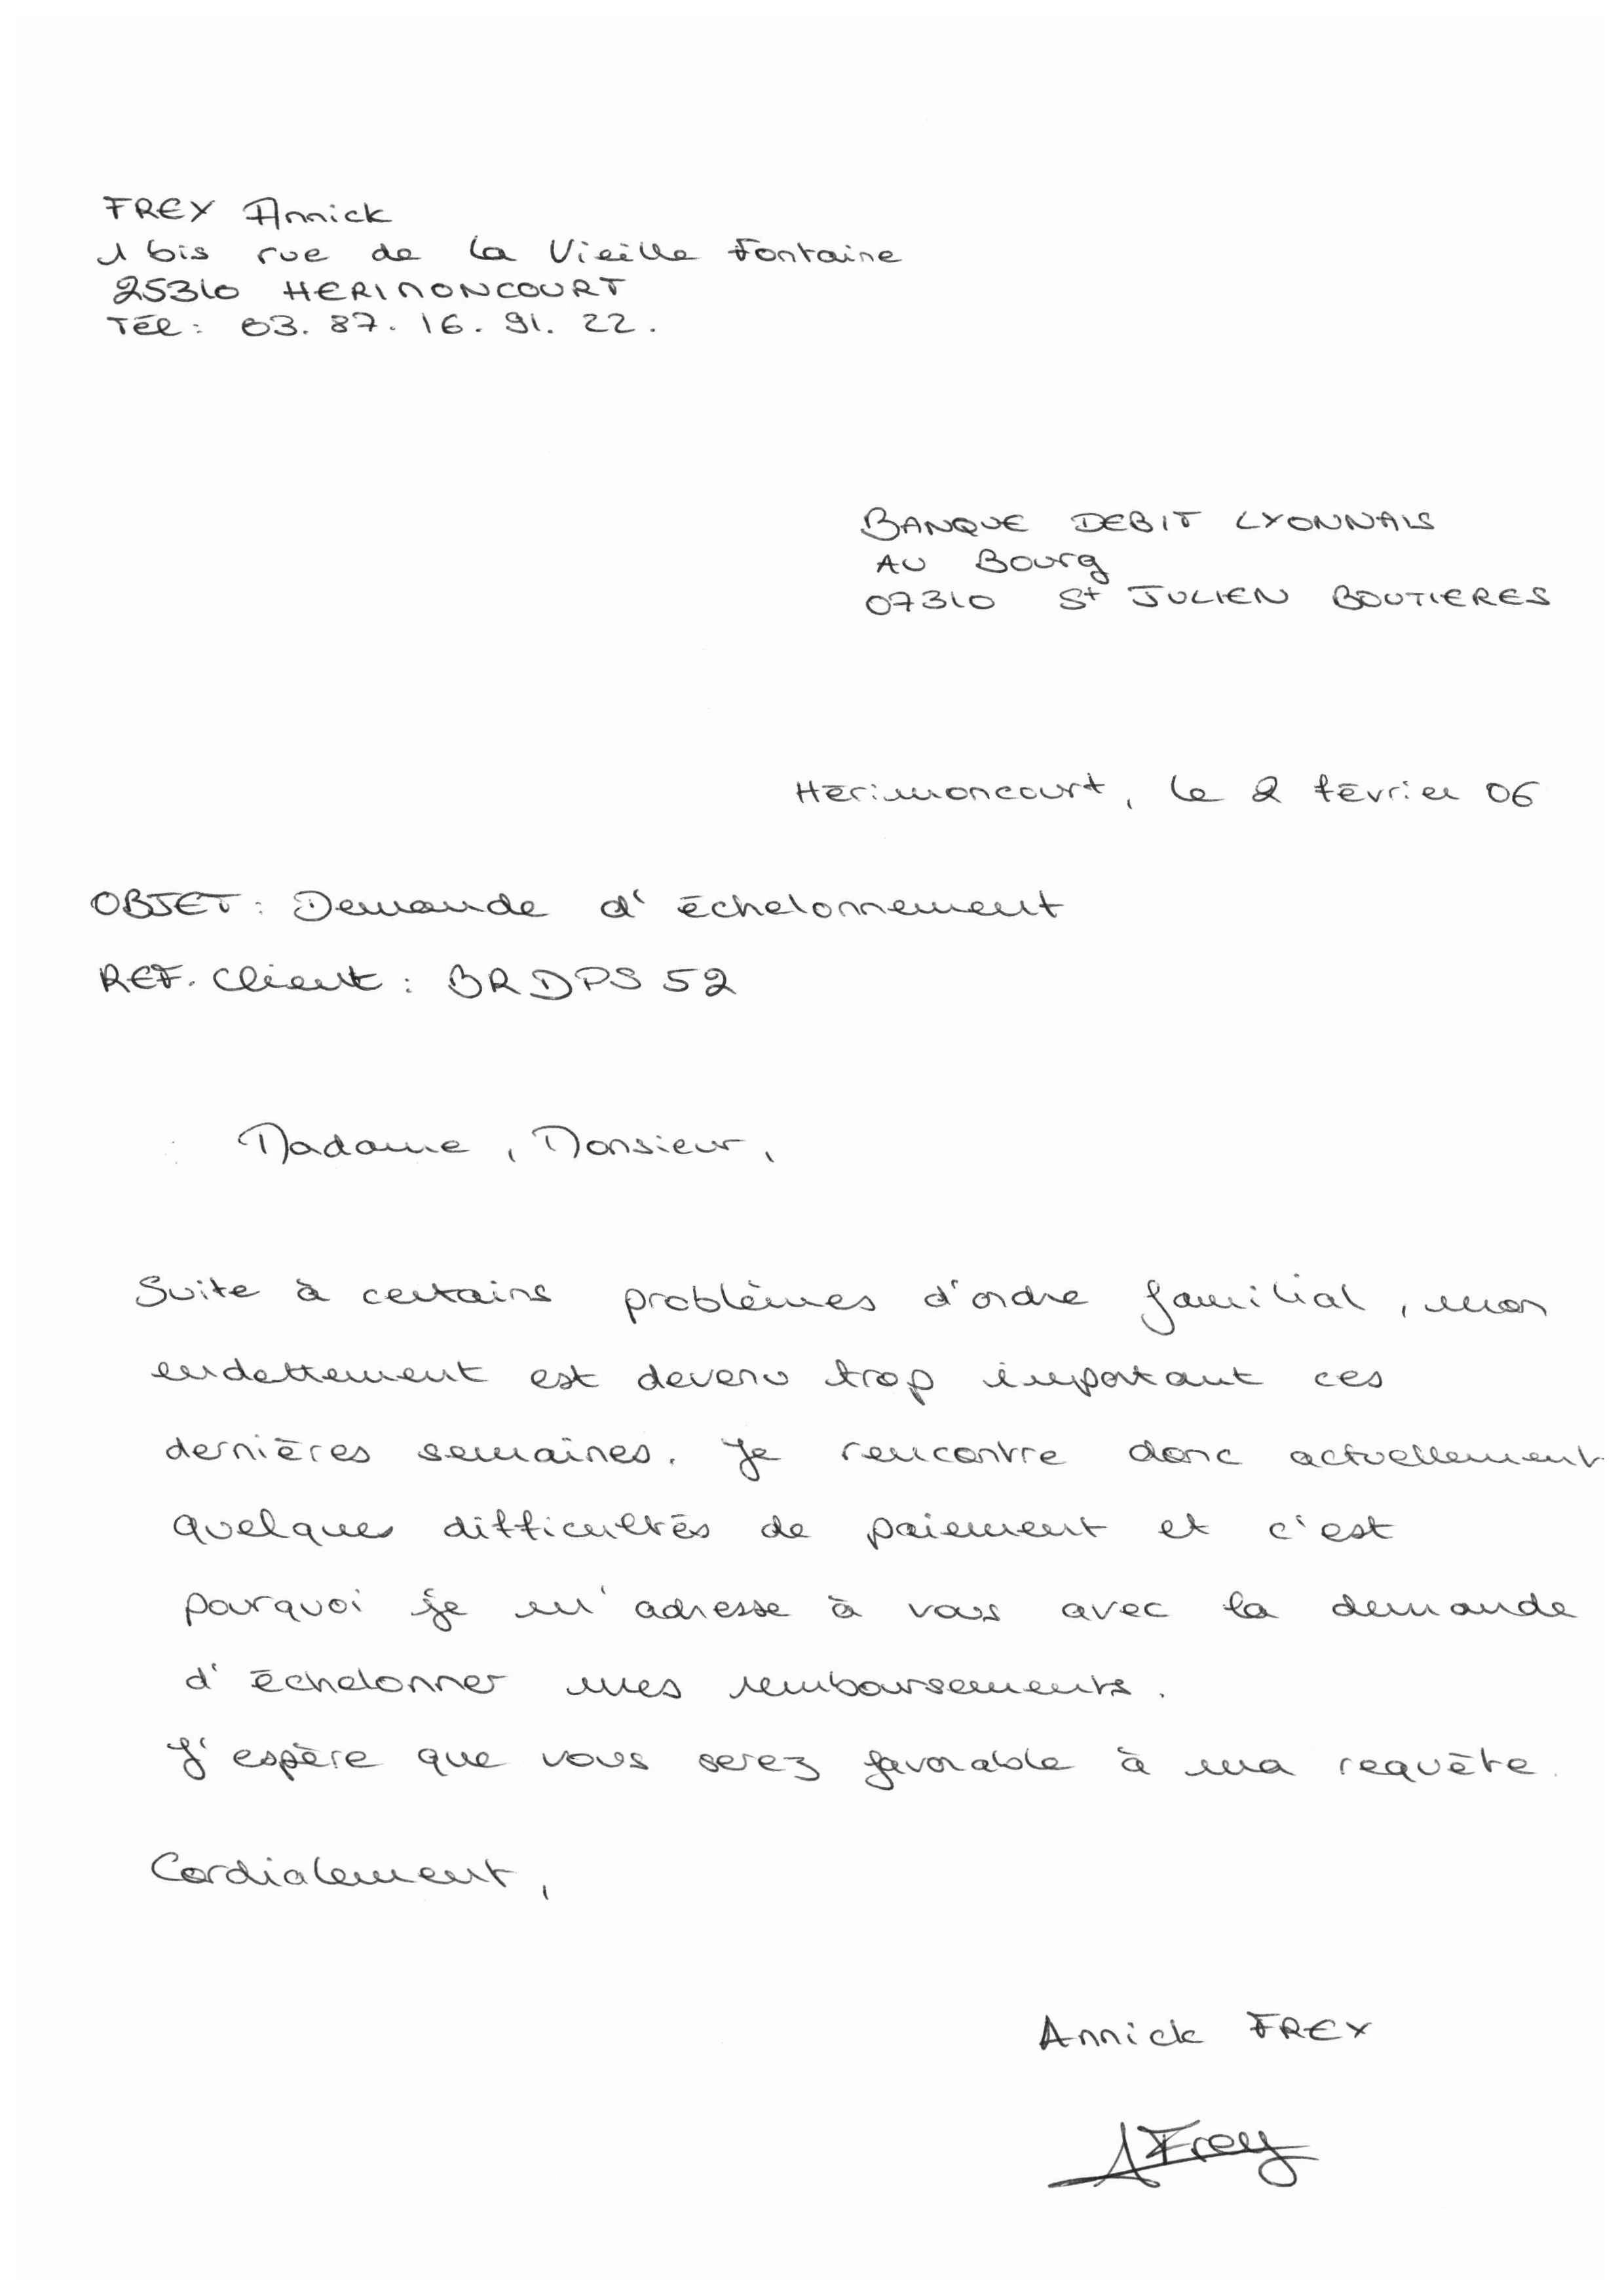 FREY Annick
1 bis rue de la Vieille Fontaine
25310 HERIMONCOURT
Tél : 03. 87. 16. 91. 22.
BANQUE DEBIT LYONNAIS
AU Bourg
07310 St JULIEN BOUTIERES
Hérimoncourt, le 2 février 06
OBJET : Demande d'échelonnement
REF. Client : BRDPS 52
Madame, Monsieur,
Suite à certains problèmes d'ordre familial, mon
endettement est devenu trop important ces
dernières semaines. Je rencontre donc actuellement
quelques difficultés de paiement et c'est
pourquoi je m'adresse à vous avec la demande
d'échelonner mes remboursements.
J'espère que vous serez favorable à ma requête.
Cordialement,
Annick FREY
AFrey